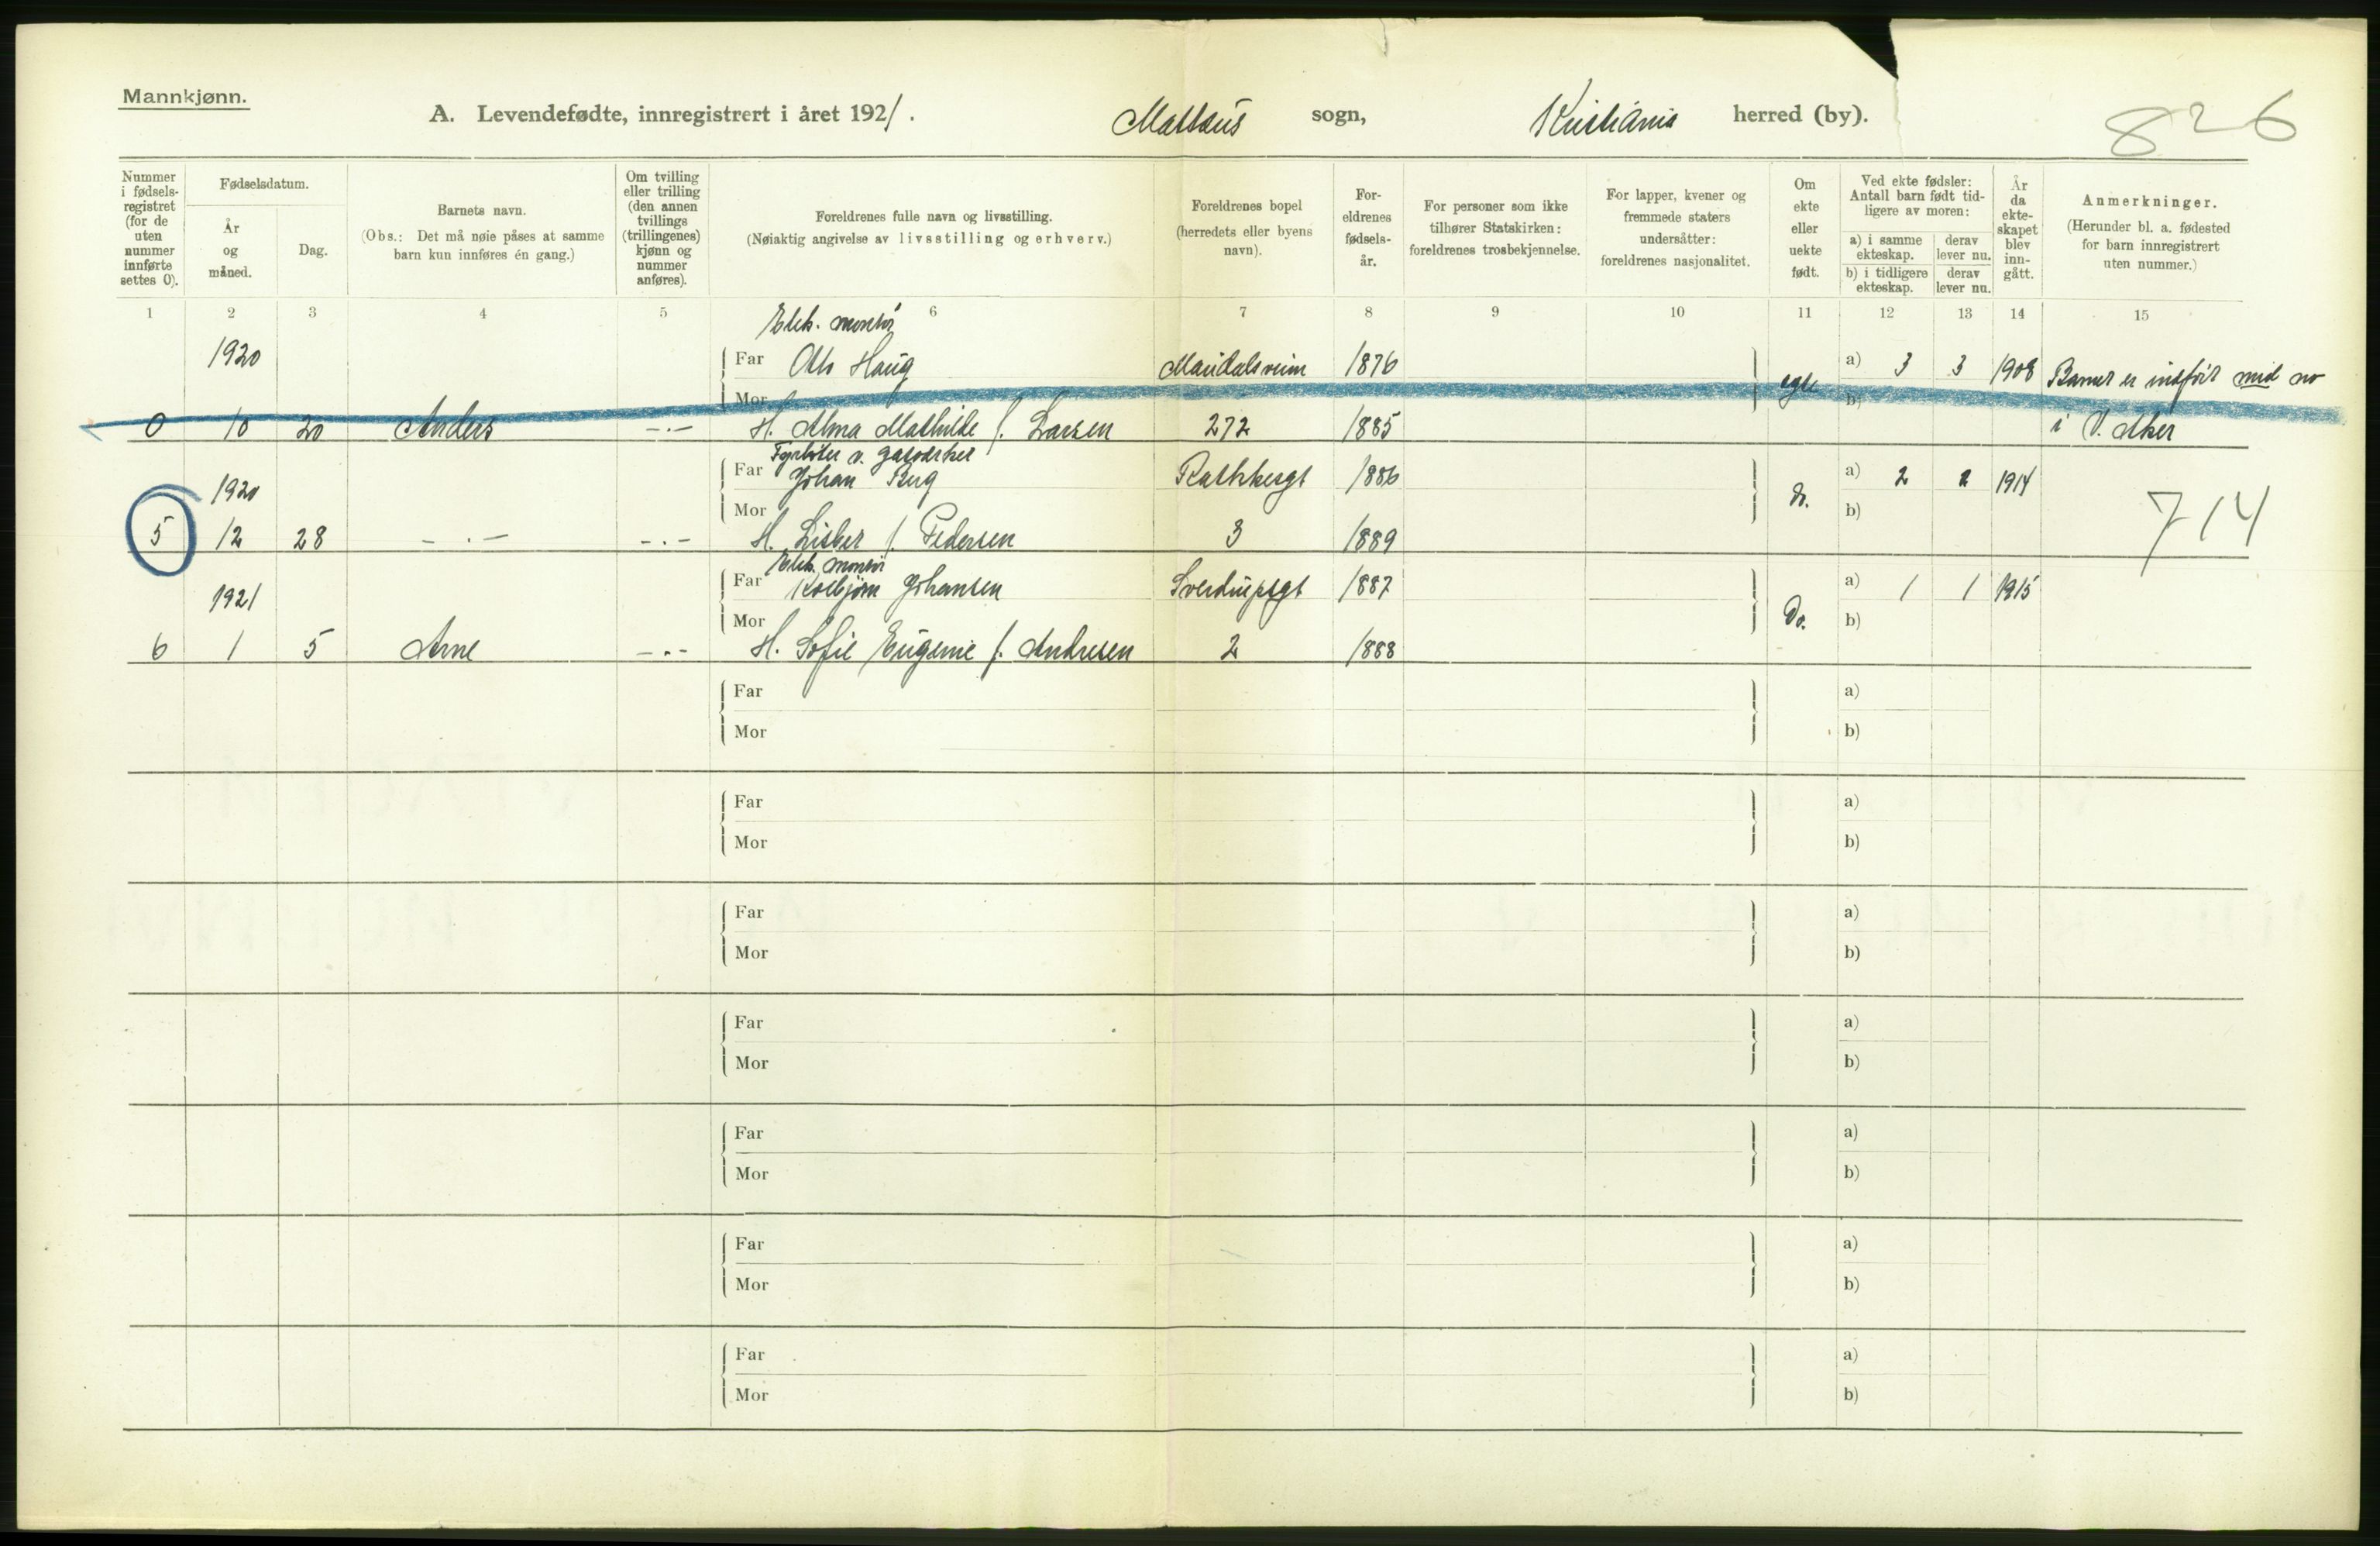 Mannkjønn.
A. Levendefødte, innregistrert i året 1921.
Mattæus sogn, Kristiania herred (by).
826
Nummer i fødsels- registret (for de uten nummer innførte settes 0).
Fødselsdatum.
År og måned.
Dag.
Barnets navn.
(Obs.: Det må nøie påses at samme barn kun innføres én gang.)
Om tvilling eller trilling (den annen tvillings (trillingenes) kjønn og nummer anføres).
Foreldrenes fulle navn og livsstilling.
(Nøiaktig angivelse av livsstilling og erhverv.)
Foreldrenes bopel (herredets eller byens navn).
For- eldrenes fødsels- år.
For personer som ikke tilhører Statskirken: foreldrenes trosbekjennelse.
For lapper, kvener og fremmede staters undersåtter: foreldrenes nasjonalitet.
Om ekte eller uekte født.
Ved ekte fødsler: Antall barn født tid- ligere av moren:
a) i samme ekteskap.
derav lever nu.
b) i tidligere ekteskap.
derav lever nu.
År da ekte- skapet blev inn- gått.
Anmerkninger.
(Herunder bl. a. fødested for barn innregistrert uten nummer.)
1 2 3 4 5 6 7 8 9 10 11 12 13 14 15
Elek. montør
1920 Far Otto Haug Maridalsveien 1876 a) 3 3 1908 Barnet er indført med no
Mor egte b)
0 10 20 Anders -.- H. Alma Mathilde f. Larsen 272 1885 i V. Aker
Fyrbøter v. gasværket
1920 Far Johan Berg Rathkesgt 1886 a) 2 2 1914
Mor Do. b) 714
5 12 28 -.- -.- H. Lisber f. Pedersen 3 1889
Elek. montør
1921 Far Kolbjørn Johansen Sverdrupsgt 1887 a) 1 1 1915
Mor Do. b)
6 1 5 Arne -.- H. Sofie Eugenie f. Andresen 2 1888
Far a)
Mor b)
Far a)
Mor b)
Far a)
Mor b)
Far a)
Mor b)
Far a)
Mor b)
Far a)
Mor b)
Far a)
Mor b)